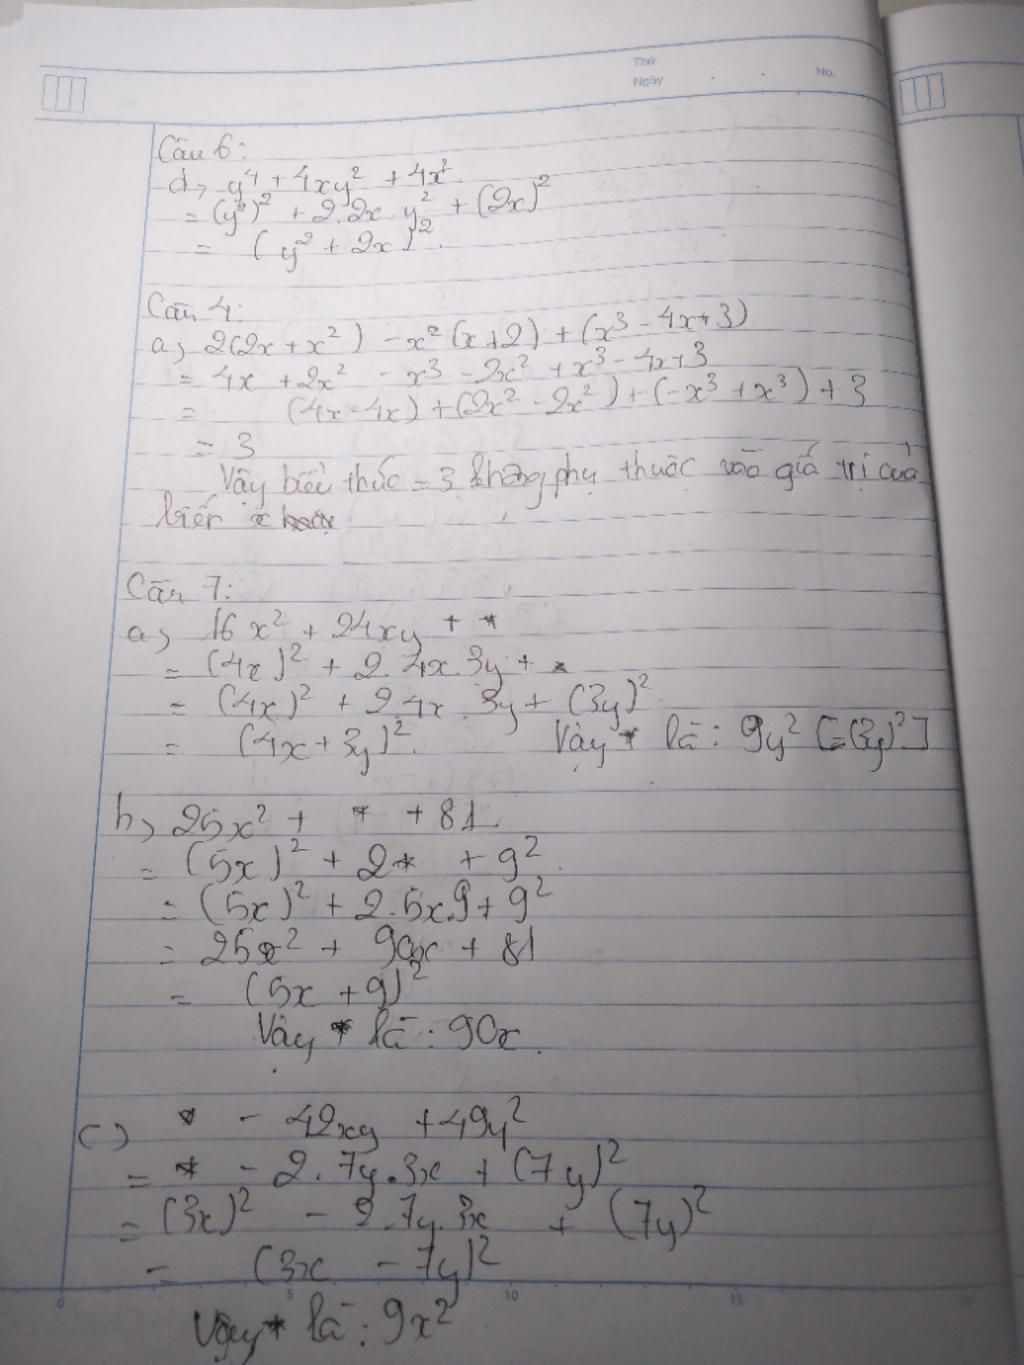 Thứ
Ngày
No.
Câu 6:
d, y⁴ + 4xy² + 4x²
= (y²)² + 2.2x y² + (2x)²
= (y² + 2x)².
Câu 4:
a, 2(2x + x²) - x²(x+2) + (x³ - 4x+3)
= 4x + 2x² - x³ - 2x² + x³ - 4x+3
= (4x-4x) + (2x² - 2x²) + (-x³ + x³) + 3
= 3
Vậy biểu thức = 3 không phụ thuộc vào giá trị của
biến x
Câu 7:
a, 16x² + 24xy + *
= (4x)² + 2.4x.3y + *
= (4x)² + 2 4x.3y + (3y)²
= (4x+3y)². Vậy * là: 9y² [=(3y)²]
b, 25x² + * + 81.
= (5x)² + 2* + 9².
= (5x)² + 2.5x.9 + 9²
= 25x² + 90x + 81
= (5x + 9)²
Vậy * là: 90x.
c) * - 42xy + 49y²
= * - 2.7y.3x + (7y)²
= (3x)² - 2.7y.3x + (7y)²
= (3x - 7y)²
0 5 10 15
Vậy * là: 9x²